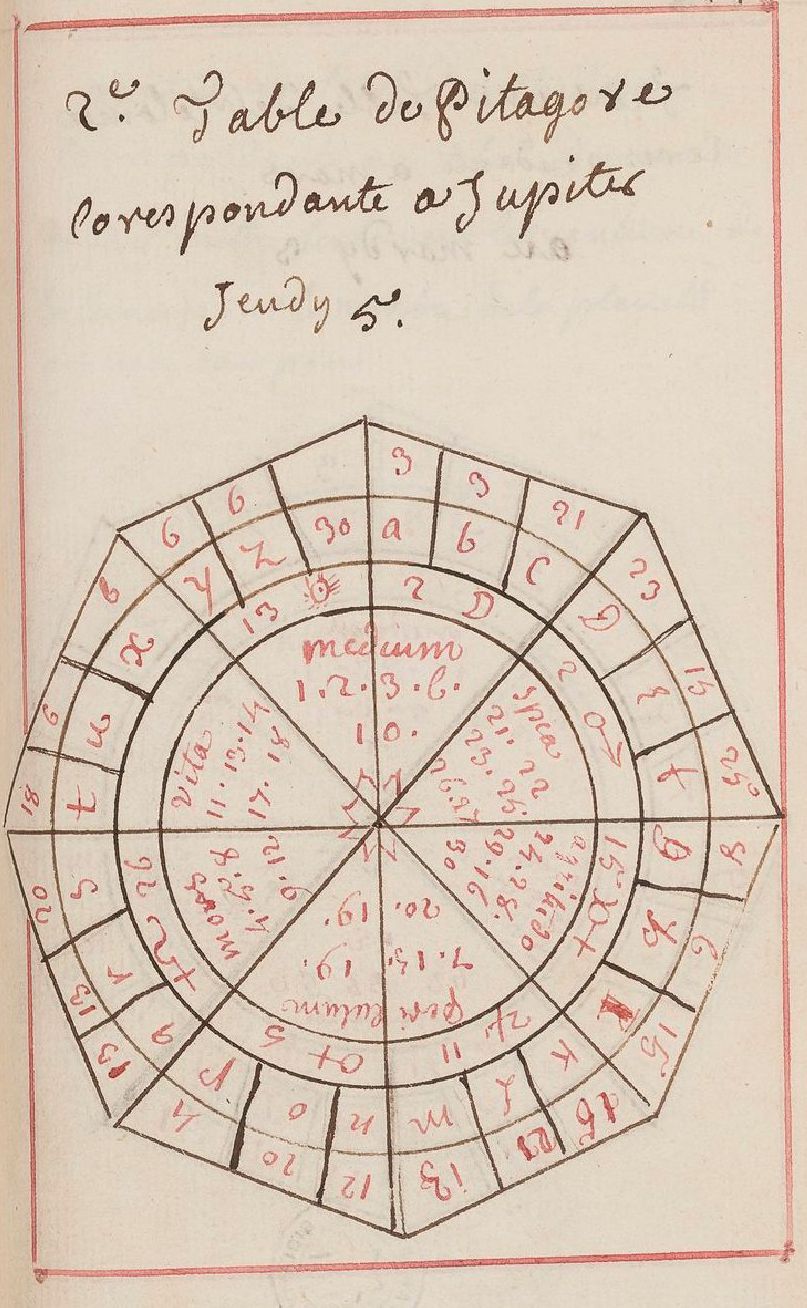 2e. Table de Pitagore
Corespondante a Jupiter
Jeudy 5e.
3 3 21
a b C
2 D
23 15 25
D
2
8 6 15
15
K
15 21 13
L m
11
12 20 4
n o p
5
13 13 20
q r s
26
18 9 8
t u x
6 6
y Z 30
13
medium
1. 2. 3. 6.
10.
Spica
21. 22
23. 25.
26. 27
egritudo
24. 28.
29. 16
30
periculum
7. 15. 19.
20. 19.
mors
4. 5. 8
9. 12
vita
11. 13. 14
17. 18